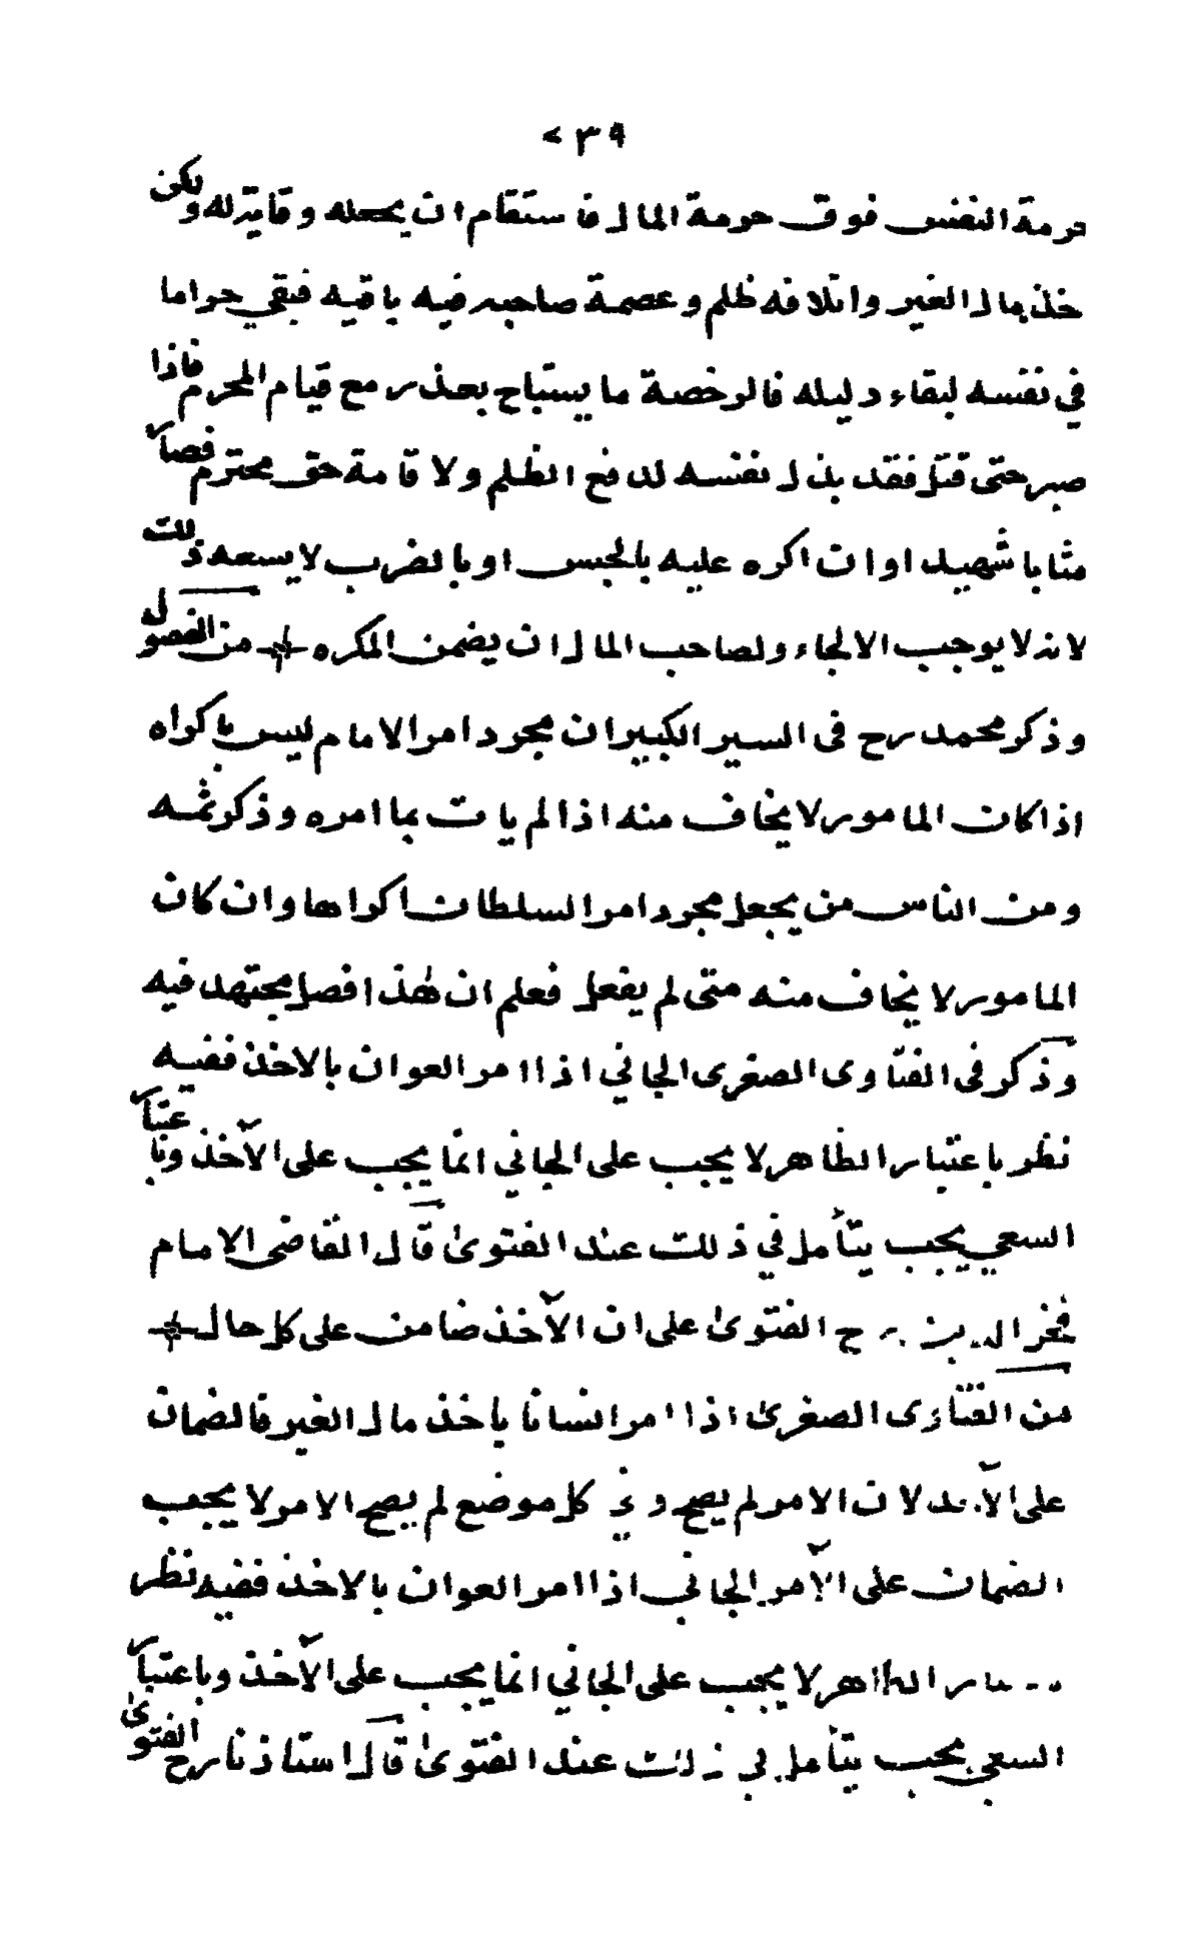 ٢٣٩
حرمة النفس فوق حرمة المال فاستقام ان يجعله وقاية له ولكن
خذ مال الغير واتلافه ظلم وعصمة صاحبه فيه باقيه فبقي حراما
في نفسه لبقاء دليله فالرخصة ما يستباح بعذر مع قيام المحرم فاذا
صبر حتى قتل فقد بذل نفسه لدفع الظلم ولاقامة حق محترم فصار
مثابا شهيدا وان اكره عليه بالحبس او بالضرب لا يسعه ذلك
لانه لا يوجب الالجاء ولصاحب المال ان يضمن المكره من الفصول
وذكر محمد رح فى السير الكبير ان مجرد امر الامام ليس باكراه
اذا كان المامور لا يخاف منه اذا لم يات بما امره وذكر ثمه
ومن الناس من يجعل مجرد امر السلطان اكراها وان كان
المامور لا يخاف منه متى لم يفعل فعلم ان هٰذا فصل مجتهد فيه
وذكر فى الفتاوى الصغرى الجاني اذا امر العوان بالاخذ ففيه
نظر باعتبار الظاهر لا يجب على الجاني انما يجب على الآخذ وباعتبار
السعي يجب يتأمل في ذلك عند الفتوىٰ قال القاضى الامام
فخر الدين رح الفتوىٰ على ان الآخذ ضامن على كل حال
من الفتاوى الصغرىٰ اذا امر انسانا ياخذ مال الغير فالضمان
على الآخذ لان الامر لم يصح وفي كل موضع لم يصح الامر لا يجب
الضمان على الآمر الجاني اذا امر العوان بالاخذ ففيه نظر
باعتبار الظاهر لا يجب على الجاني انما يجب على الآخذ وباعتبار
السعي يجب يتأمل في ذلك عند الفتوىٰ قال استاذنا رح الفتوىٰ